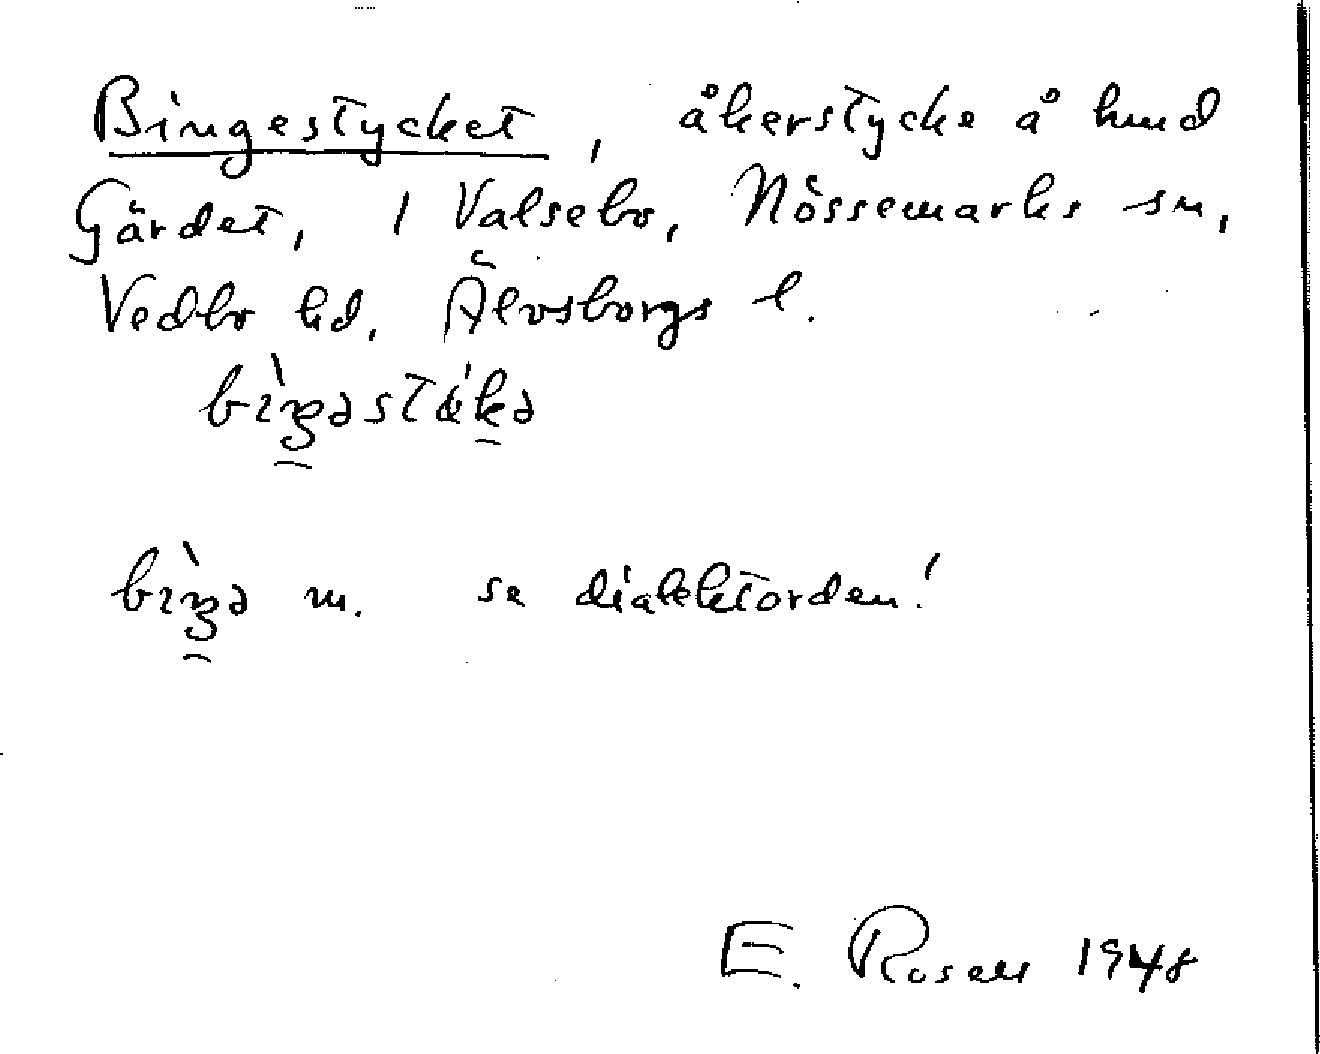 Bingestycket, åkerstycke å hmd
Gärdet, 1 Valsebo, Nössemarks sn,
Vedbo hd, Älvsborgs l.
bìŋəstýkə
bìŋə m. se dialektorden!
E. Rosell 1948